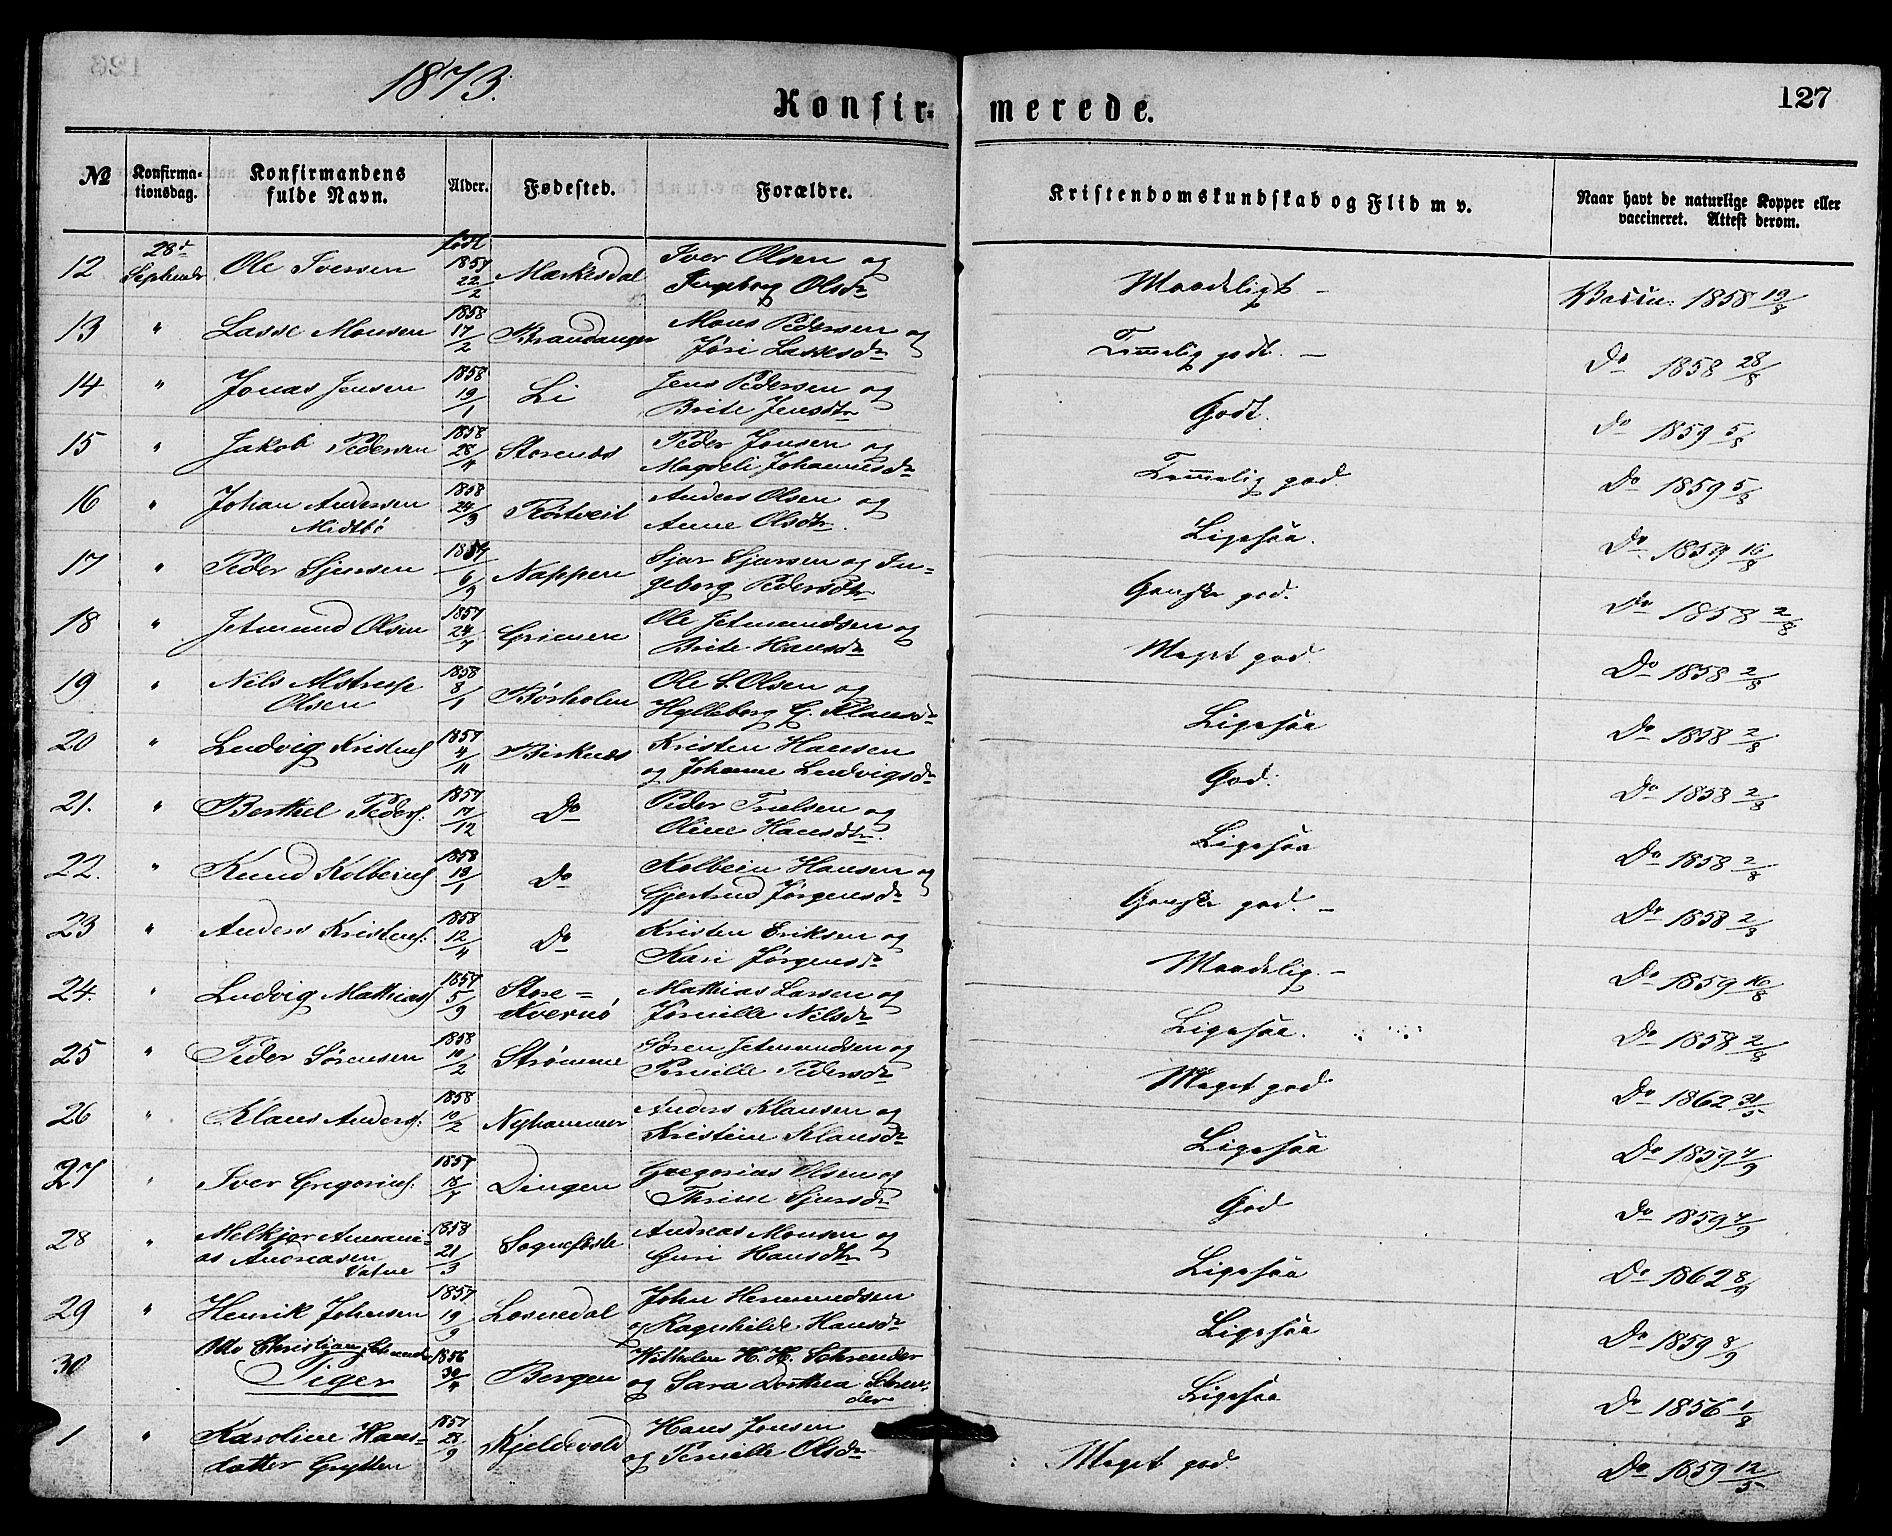 1873.
127
Konfir- merede.
№ Konfirma-tionsdag. Konfirmandens fulde Navn. Alder. Fødested. Forældre. Kristendomskundskab og Flid m v. Naar havt de naturlige Kopper eller vaccineret. Attest derom.
12 28d Septembr Ole Iversen født 1857 22/2 Mærkesdal Iver Olsen og Ingeborg Olsdr Maadeligt – Vaccin: 1858 19/8
13 " Lasse Monsen 1858 17/2 Brandanger Mons Pedersen og Jøri Lassesdr Temmelig godt. – Do 1858 28/8
14 " Jonas Jensen 1858 19/1 Li Jens Pedersen og Brite Jensdtr Godt. Do 1859 5/8
15 " Jakob Pedersen 1858 28/4 Storenes Peder Jonsen og Magdeli Johannesdr Temmelig god Do 1859 5/8
16 " Johan Andersen Midtbö 1858 24/3 Törtveit Anders Olsen og Anne Olsdtr. Ligesaa. Do 1859 16/8
17 " Peder Sjursen 1857 6/9 Nappen Sjur Sjursen og In-geborg Pedersdtr Ganske god. Do 1858 2/8
18 " Jetmund Olsen 1857 24/7 Grimen Ole Jetmundsen og Brite Hansdr Meget god. Do 1858 2/8
19 " Nils Alstrup Olsen 1858 8/1 Børholen Ole L. Olsen og Hylleborg G. Klausdr Ligesaa Do 1858 2/8
20 " Ludvig Kristens 1857 4/11 Birknes Kristen Hansen og Johanne Ludvigsdr God. Do 1858 2/8
21. " Berthel Peders: 1857 17/12 Do Peder Trulsen og Oline Hansdtr. Ligesaa Do 1858 2/8
22. " Knud Kolbeins 1858 13/1 Do Kolbein Hansen og Gjertrud Jørgensdr Ganske god. – Do 1858 2/8
23 " Anders Kristens: 1858 12/4 Do Kristen Eriksen og Kari Jørgensdr Maadelig. – Do 1859 16/8
24. " Ludvig Mathias 1857 5/9 Store= Kvernö Mathias Larsen og Jørnille Nilsdr Ligesaa. Do 1858 2/8
25 " Peder Sørensen 1858 10/2 Strömme Søren Jetmundsen og Pernille Pedersdr Meget god Do 1862 31/5
26 " Klaus Anders: 1858 10/2 Nyhammer Anders Klausen og Kristine Klausdr Ligesaa Do 1859 7/9
27 " Iver Gregorius: 1857 18/7 Dingen Gregorius Olsen og Thrine Sjursdr God Do 1859 7/9
28 " Melkjor Annani-as Andreasen Vatne 1858 21/3 Sognefæste Andreas Monsen og Guri Hansdtr Ligesaa Do 1862 8/9
29 " Henrik Johnsen 1857 19/9 Losnedal John Hermundsen og Ragnhilde Hansdr Ligesaa Do 1859 8/9
30 Otto Christian Schreuder Tiger 1856 30/4 Bergen Wilhelm H. H. Schreuder og Sara Dorthea Schreu-der Ligesaa Do 1856 1/8
1 " Karoline Hans-datter Grytten 1857 28/9 Kjeldevold Hans Jensen og Pernille Olsdr Meget god Do 1859 12/5